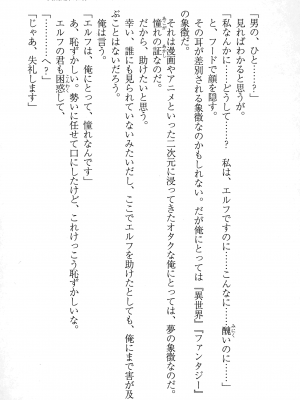 「男の、ひと……？」
見ればわかると思うが。
「私なんかに……どうして……？　私は、エルフですのに……こんなに……醜いのに……」
と、フードで顔を隠した。
その耳が差別される象徴なのかもしれない。だが俺にとっては『異世界』『ファンタジー』
の象徴だ。
それは漫画やアニメといった二次元に浸ってきたオタクな俺にとっては、夢の象徴なのだ。
憧れの証なのだ。
だから、助けたいと思う。
幸い、誰にも見られていないみたいだし、ここでエルフを助けたとしても、俺にまで害が及
ぶことはないだろう。
俺は言う。
「エルフは、俺にとって、憧れなんです」
あ、恥ずかしい。勢いに任せて口にしたけど、これけっこう恥ずかしいな。
エルフの君も困惑して、
「…………へ？」
「じゃあ、失礼します」